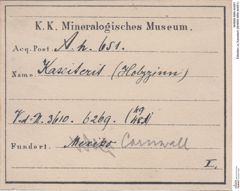 K. K. Mineralogisches Museum.
Acq. Post. A. h. 651.
Name: Kassiterit (Holzzinn)
3610. 6269.
Fundort. Mexiko Cornwall
I.